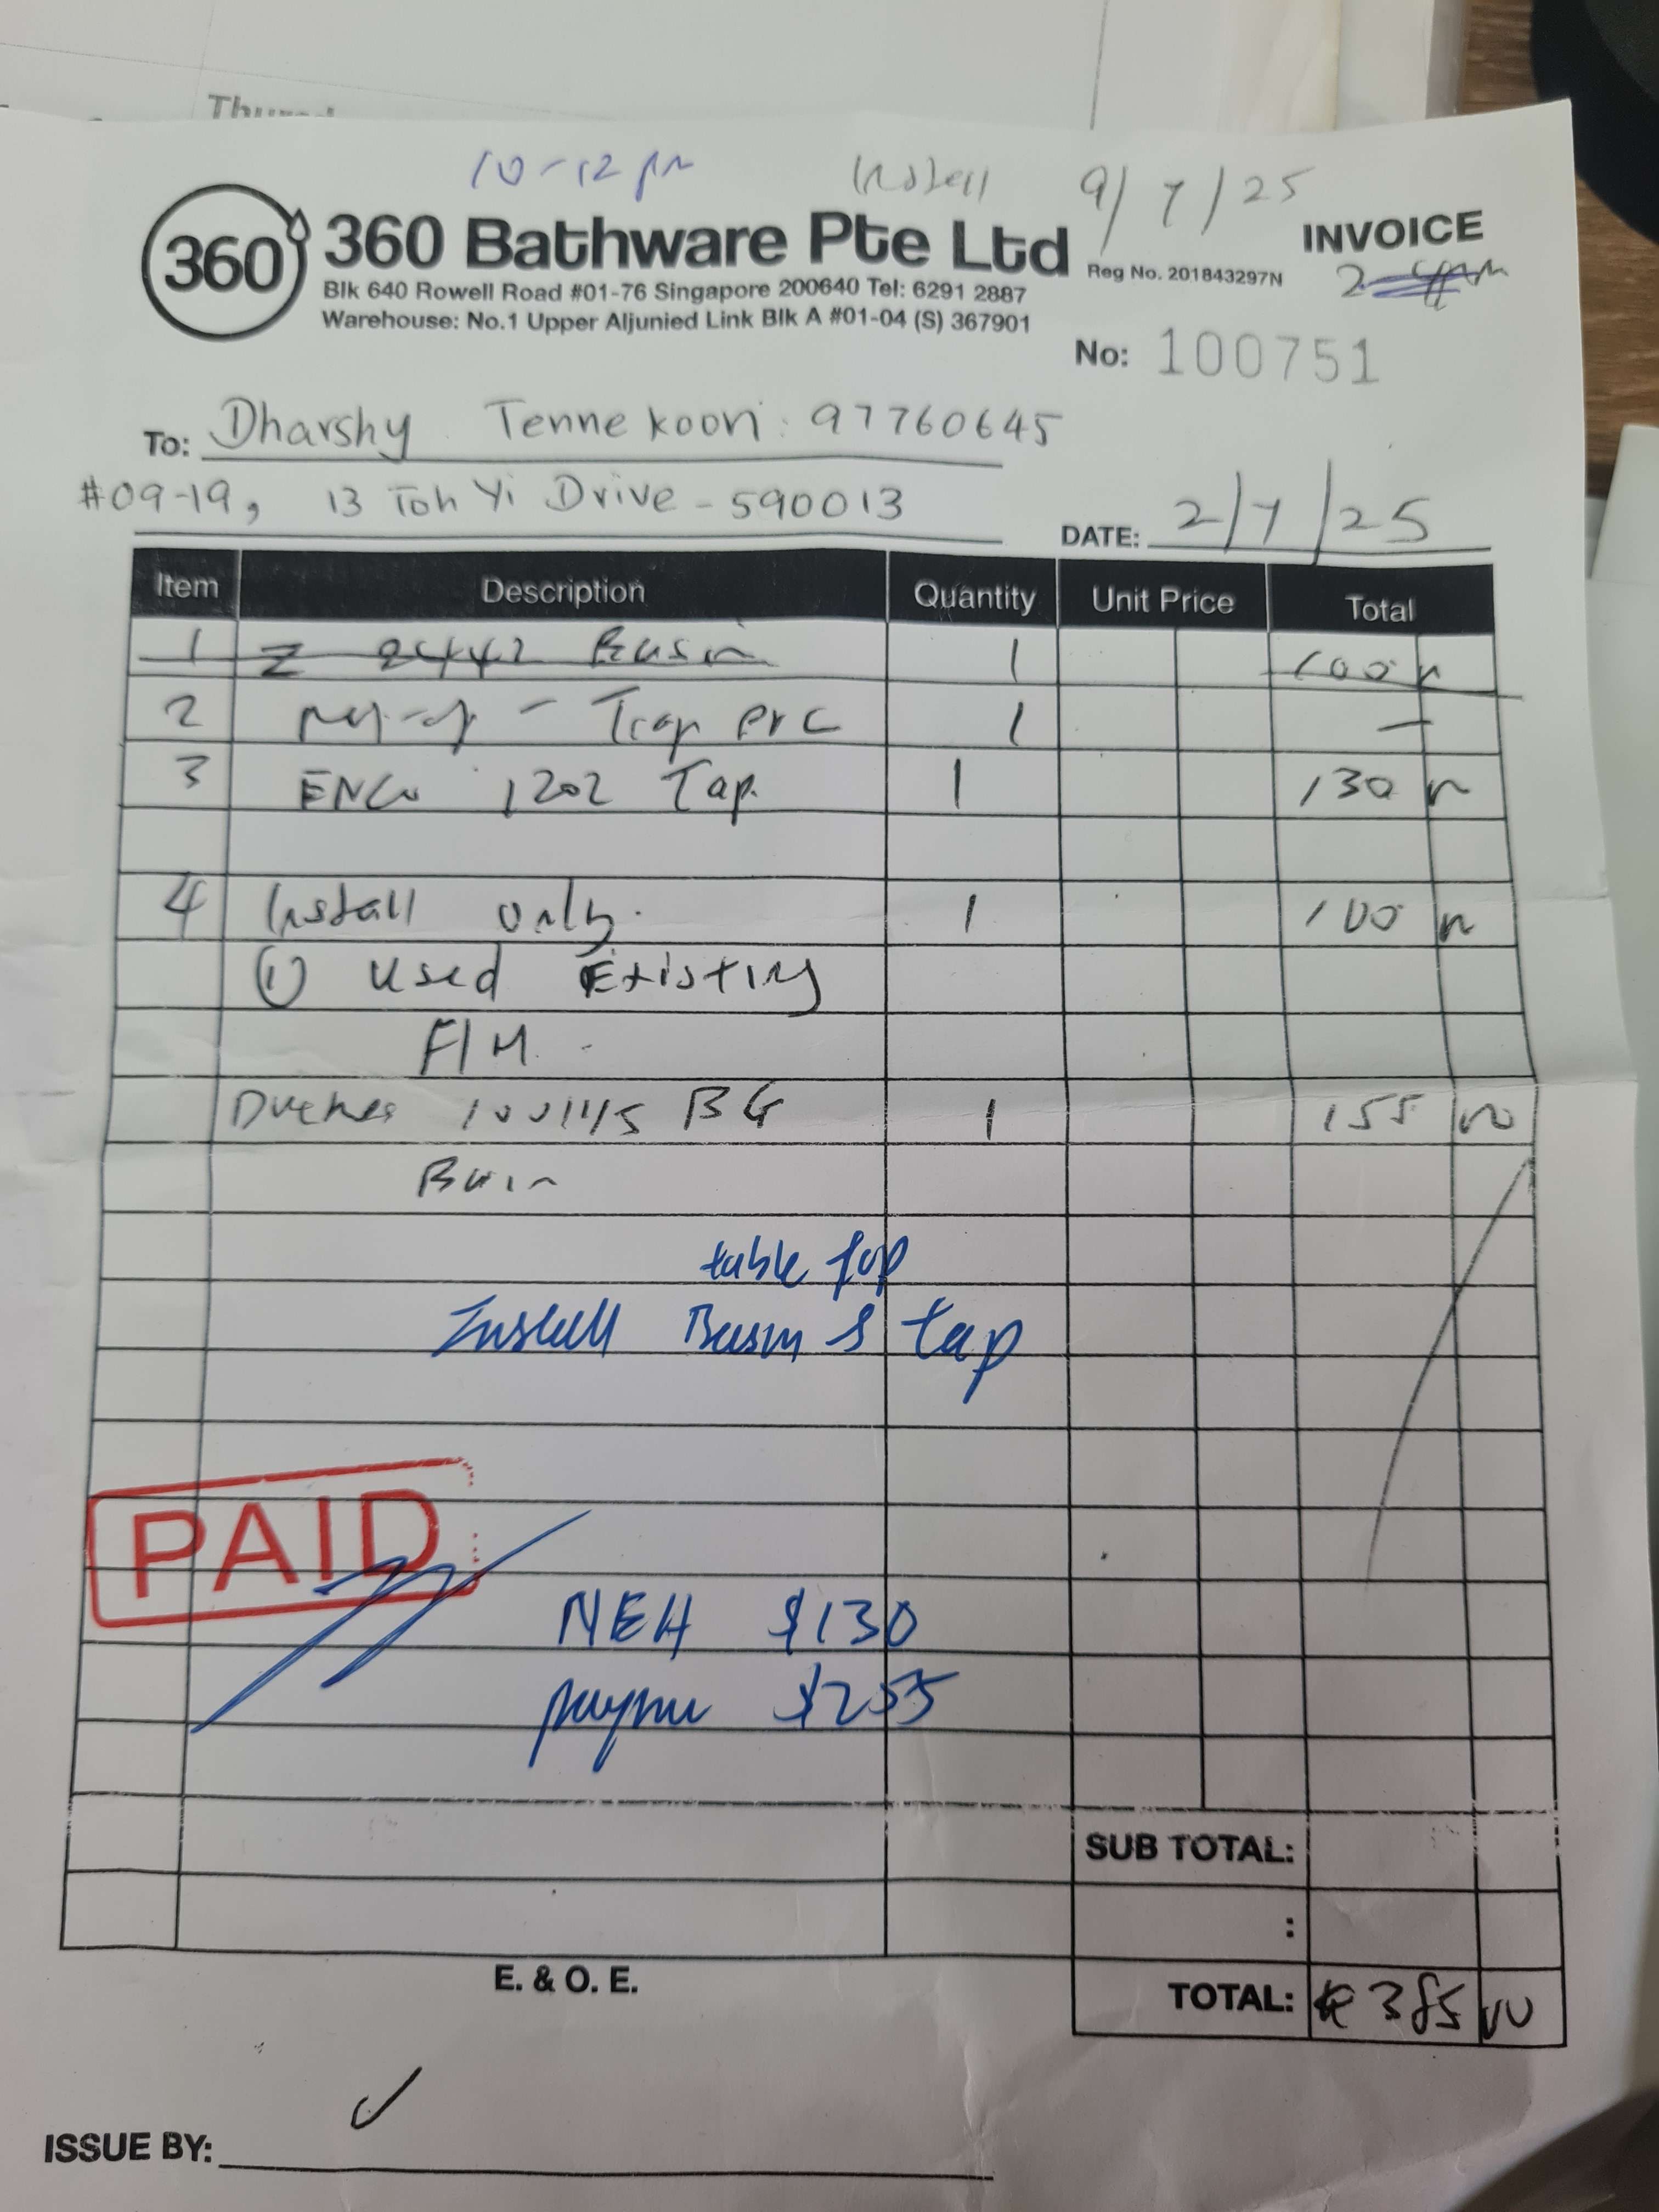 10-12 pm Install 9/7/25
360 360 Bathware Pte Ltd INVOICE
Reg No. 201843297N
Blk 640 Rowell Road #01-76 Singapore 200640 Tel: 6291 2887
Warehouse: No.1 Upper Aljunied Link Blk A #01-04 (S) 367901
No: 100751
To: Dharshy Tennekoon: 97760645
#09-19, 13 Toh Yi Drive - 590013
DATE: 2/7/25
Item Description Quantity Unit Price Total
1 Z 8442 Basin 1 100 00
2 - Trap PVC 1 -
3 1202 Tap 1 130 00
4 Install only. 1 100 00
① Used Existing
F/H
BG 1 155 00
Basin
table top
Install Basin & tap
PAID
NEH $130
paynow $255
SUB TOTAL:
:
E. & O. E.
TOTAL: $ 385 00
ISSUE BY: